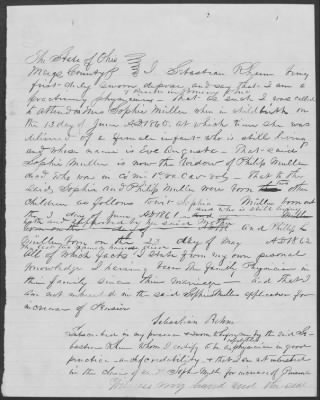 The State of Ohio
Meigs County } I, Sebastian Rhum being
first duly sworn depose and say that I am a
practicing physician
That as such I was called
to attend on Mrs Sophie Muller when in childbirth on
the 13 day of June AD 1860. at which time she was
delivered of a female infant who is still living
and whose name is Eve Augusta - That said
Sophie Muller is now the Widow of Philip Muller
dead who was in Co M 1st Va Cavalry - that to the
said Sophie and Philip Muller were born two other
children as follows to wit Sophia Muller born on
the 3 day of June AD 1861
and Philip
Muller born on the 23 day of May AD 1862
All of which facts I state from my own personal
knowledge I having been the family Physician in
their family since their marriage - and that I
am not interested in the said Sophie Muller application for
increase of Pension
Sebastian Rehm
Subscribed in my presence & sworn to before me by the said Se-
bastian Rhum whom I certify to be a physician in good
practice and of credibility & that I am not interested
in the claim of Sophie Muller for increase of Pension
Witness my hand and the seal